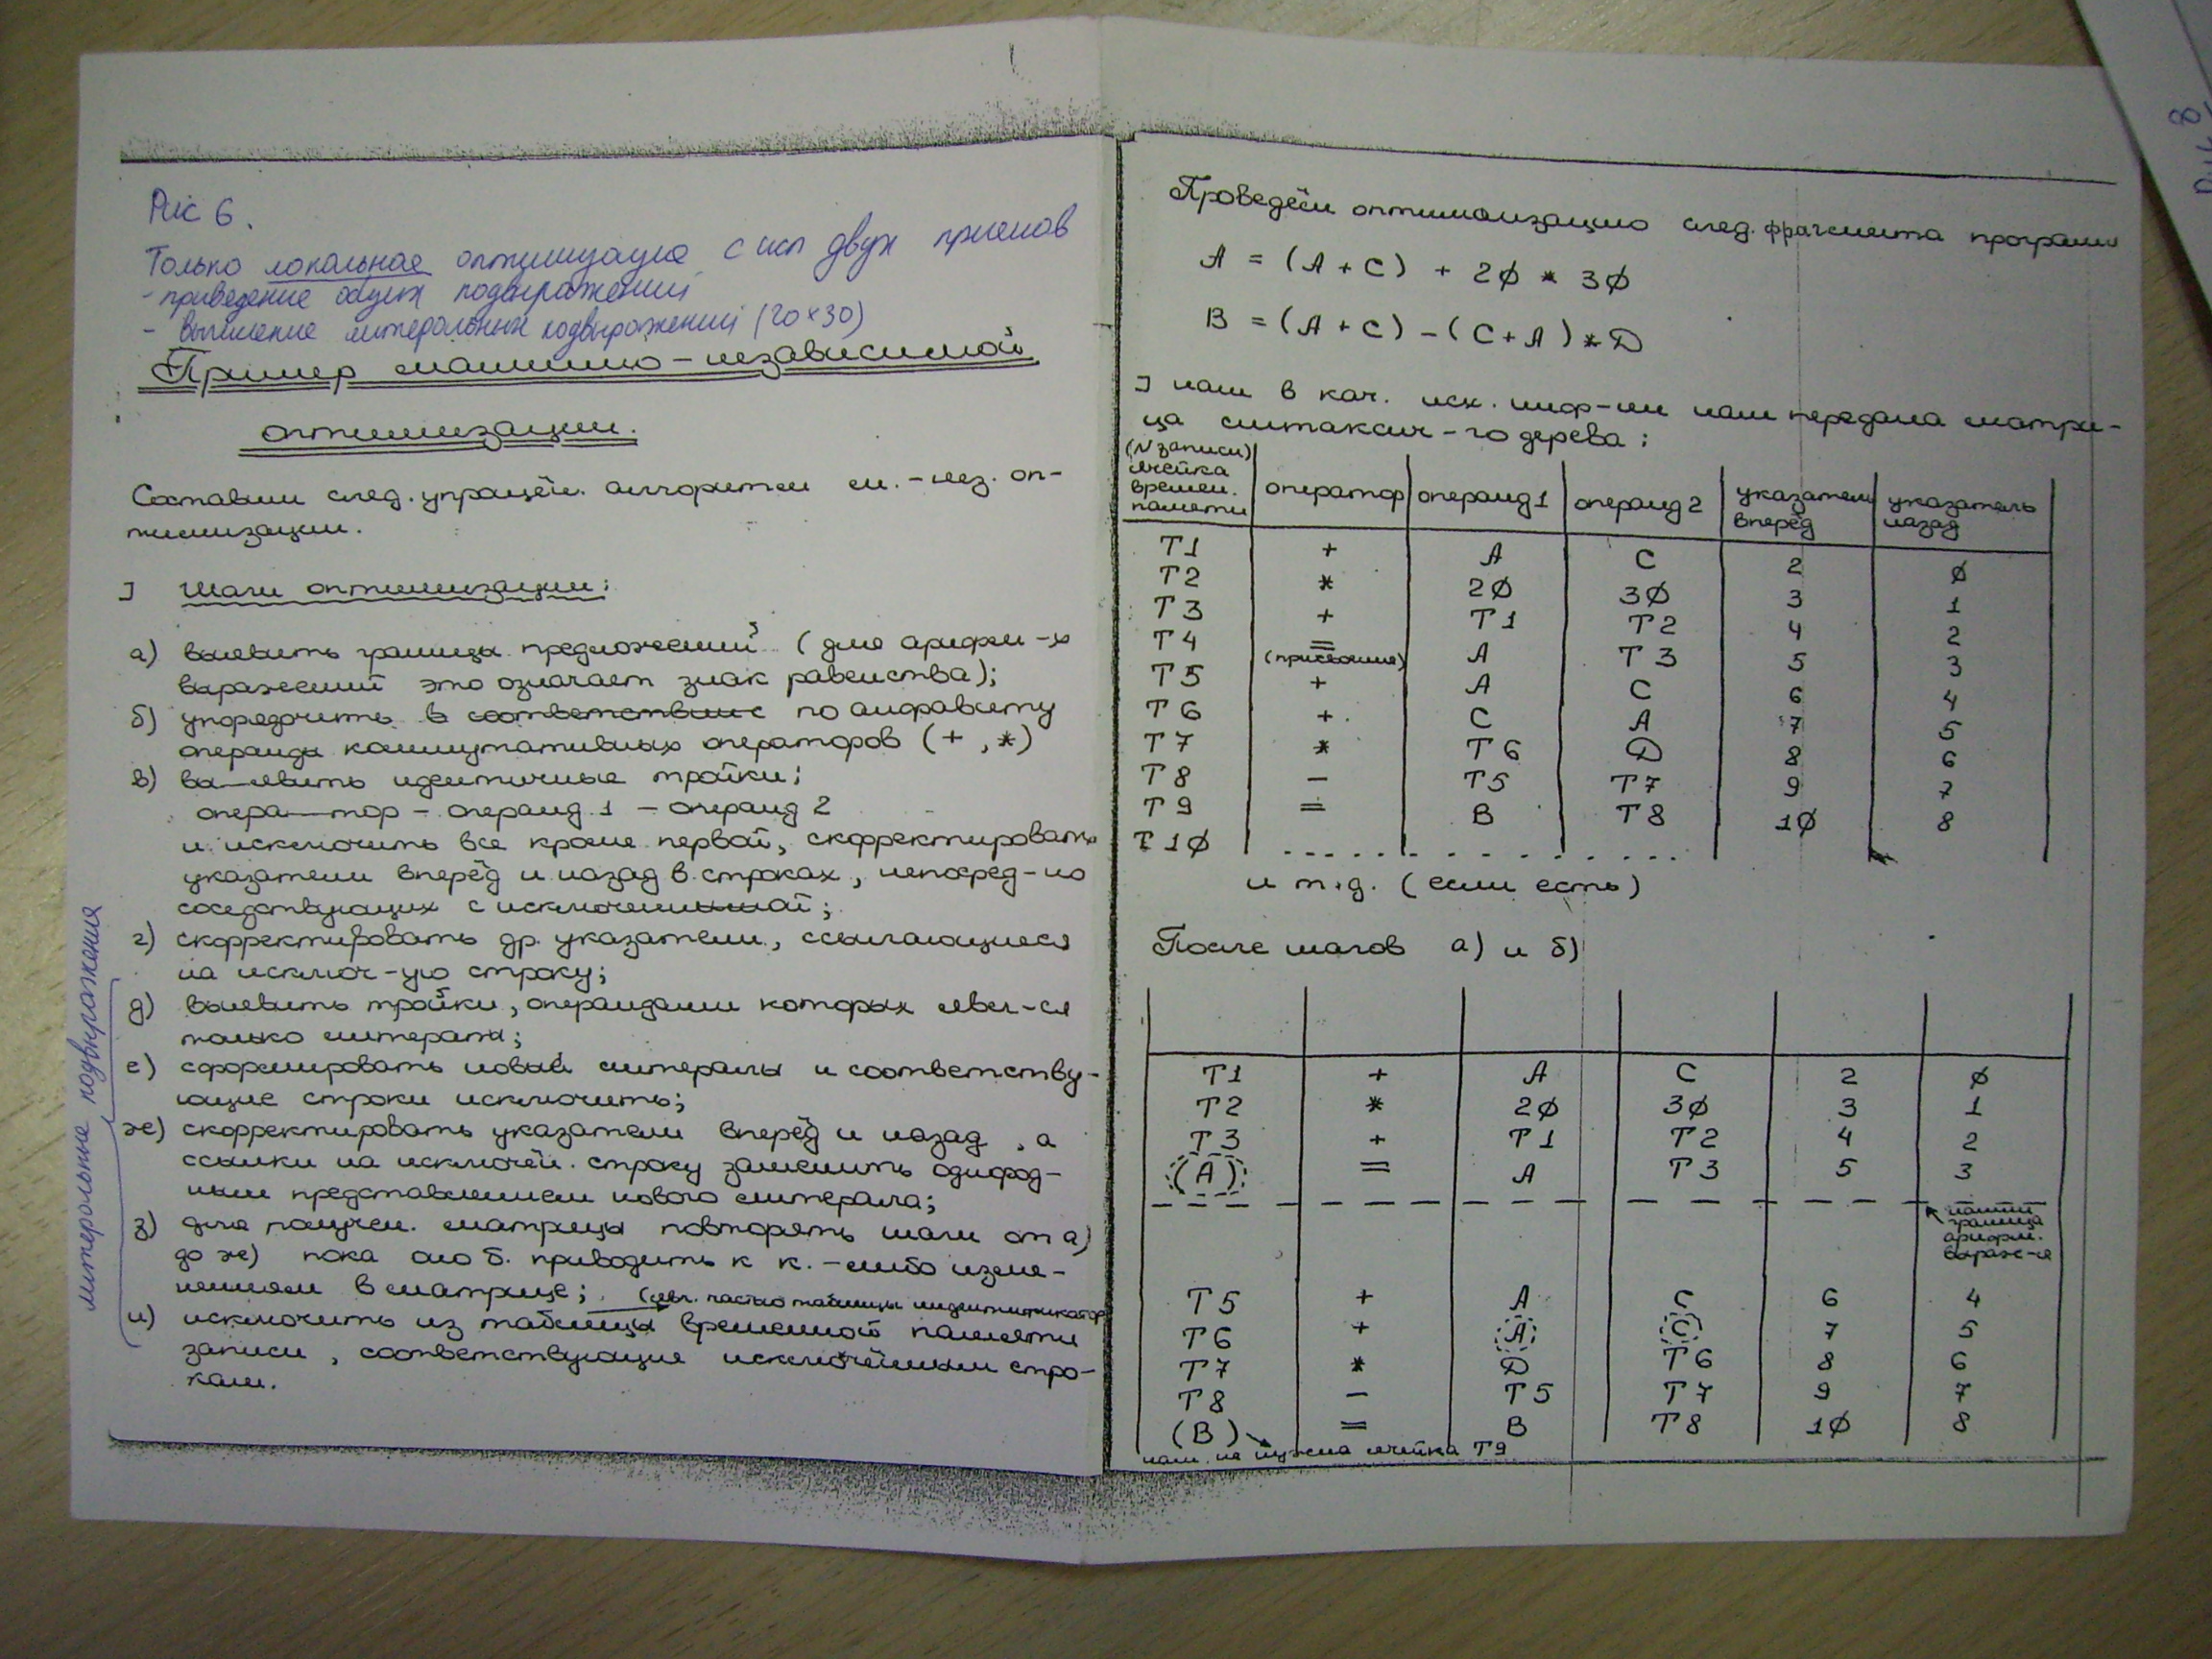 Рис 6.
Только локальная оптимизация с исп двух приемов
- приведение общих подвыражений
- вычисление литеральных подвыражений (20×30)
Пример машинно-независимой
оптимизации.
Составим след. упрощён. алгоритм м.-нез. оп-
тимизации.
] Шаги оптимизации:
а) выявить границы предложений (для арифм-х
выражений это означает знак равенства);
б) упорядочить в соответствие по алфавиту
операнды коммутативных операторов (+, *)
в) выявить идентичные тройки:
оператор - операнд 1 - операнд 2
и исключить все кроме первой, скорректировать
указатели вперёд и назад в строках, непосред-но
соседствующих с исключенной;
г) скорректировать др. указатели, ссылающиеся
на исключ-ую строку;
д) выявить тройки, операндами которых явл-ся
только литералы;
е) сформировать новый литералы и соответству-
ющие строки исключить;
ж) скорректировать указатели вперёд и назад, а
ссылки на исключён. строку заменить однород-
ным представлением нового литерала;
з) для получен. матрицы повторять шаги от а)
до ж) пока оно б. приводить к к.-либо изме-
нениям в матрице;
(явл. частью таблицы индентификатор
и) исключить из таблицы временной памяти
записи, соответствующие исключённым стро-
кам.
литеральные подвыражения
Проведём оптимизацию след. фрагмента программы
A = (A + C) + 2Ø * 3Ø
B = (A + C) - (C + A) * D
] нам в кач. исх. инф-ии нам передана матри-
ца синтаксич-го дерева:
(N записи) ячейка времен. памяти | оператор | операнд 1 | операнд 2 | указатель вперёд | указатель назад
T1 + A C 2 Ø
T2 * 2Ø 3Ø 3 1
T3 + T1 T2 4 2
T4 = (присвоение) A T3 5 3
T5 + A C 6 4
T6 + C A 7 5
T7 * T6 D 8 6
T8 - T5 T7 9 7
T9 = B T8 1Ø 8
T1Ø . . . . . . . . . . . .
и т.д. (если есть)
После шагов а) и б)
T1 + A C 2 Ø
T2 * 2Ø 3Ø 3 1
T3 + T1 T2 4 2
(A) = A T3 5 3
нашли
граница
арифм.
выраж-я
T5 + A C 6 4
T6 + A C 7 5
T7 * D T6 8 6
T8 - T5 T7 9 7
(B) = B T8 1Ø 8
нам не нужна ячейка T9